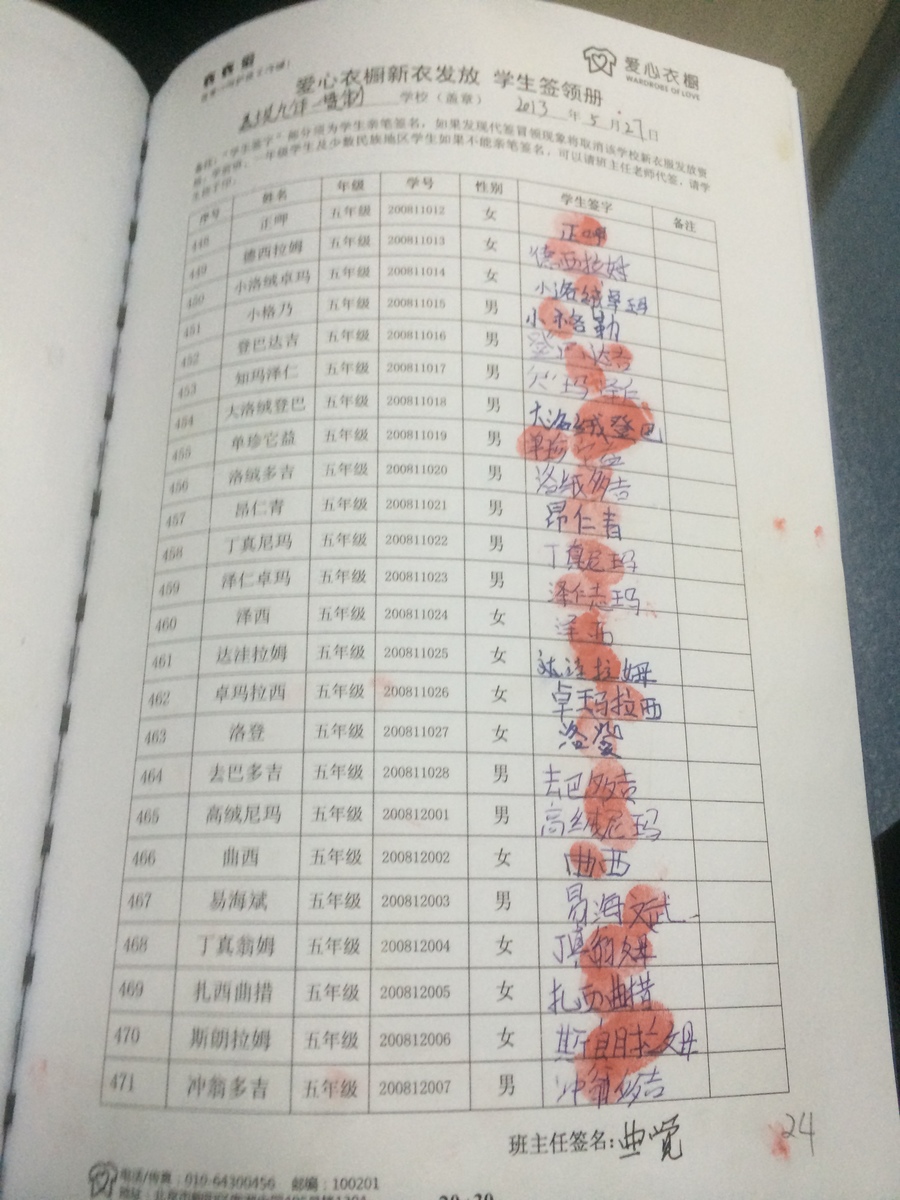 爱心衣橱
WARDROBE OF LOVE
爱心衣橱新衣发放 学生签领册
学校（盖章） 2013 年 5 月 27 日
备注："学生签字"部分须为学生亲笔签名，如果发现代签冒领现象将取消该学校新衣服发放资
格，学前班、一年级学生及少数民族地区学生如果不能亲笔签名，可以请班主任老师代签，请学
生按手印。
序号 姓名 年级 学号 性别 学生签字 备注
448 正呷 五年级 200811012 女 正呷
449 德西拉姆 五年级 200811013 女 德西拉姆
450 小洛绒卓玛 五年级 200811014 女 小洛绒卓玛
451 小格乃 五年级 200811015 男 小格勒
452 登巴达吉 五年级 200811016 男 登巴达吉
453 知玛泽仁 五年级 200811017 男 玛泽仁
454 大洛绒登巴 五年级 200811018 男 大洛绒登巴
455 单珍它益 五年级 200811019 男 单珍它益
456 洛绒多吉 五年级 200811020 男 洛绒多吉
457 昂仁青 五年级 200811021 男 昂仁青
458 丁真尼玛 五年级 200811022 男 丁真尼玛
459 泽仁卓玛 五年级 200811023 男 泽仁志玛
460 泽西 五年级 200811024 女 泽西
461 达洼拉姆 五年级 200811025 女 达洼拉姆
462 卓玛拉西 五年级 200811026 女 卓玛拉西
463 洛登 五年级 200811027 女 洛登
464 去巴多吉 五年级 200811028 男 去巴多吉
465 高绒尼玛 五年级 200812001 男 高绒尼玛
466 曲西 五年级 200812002 女 曲西
467 易海斌 五年级 200812003 男 易海斌
468 丁真翁姆 五年级 200812004 女 丁真翁姆
469 扎西曲措 五年级 200812005 女 扎西曲措
470 斯朗拉姆 五年级 200812006 女 斯朗拉姆
471 冲翁多吉 五年级 200812007 男 冲翁多吉
班主任签名：曲觉
24
电话/传真：010-64300456 邮编：100201